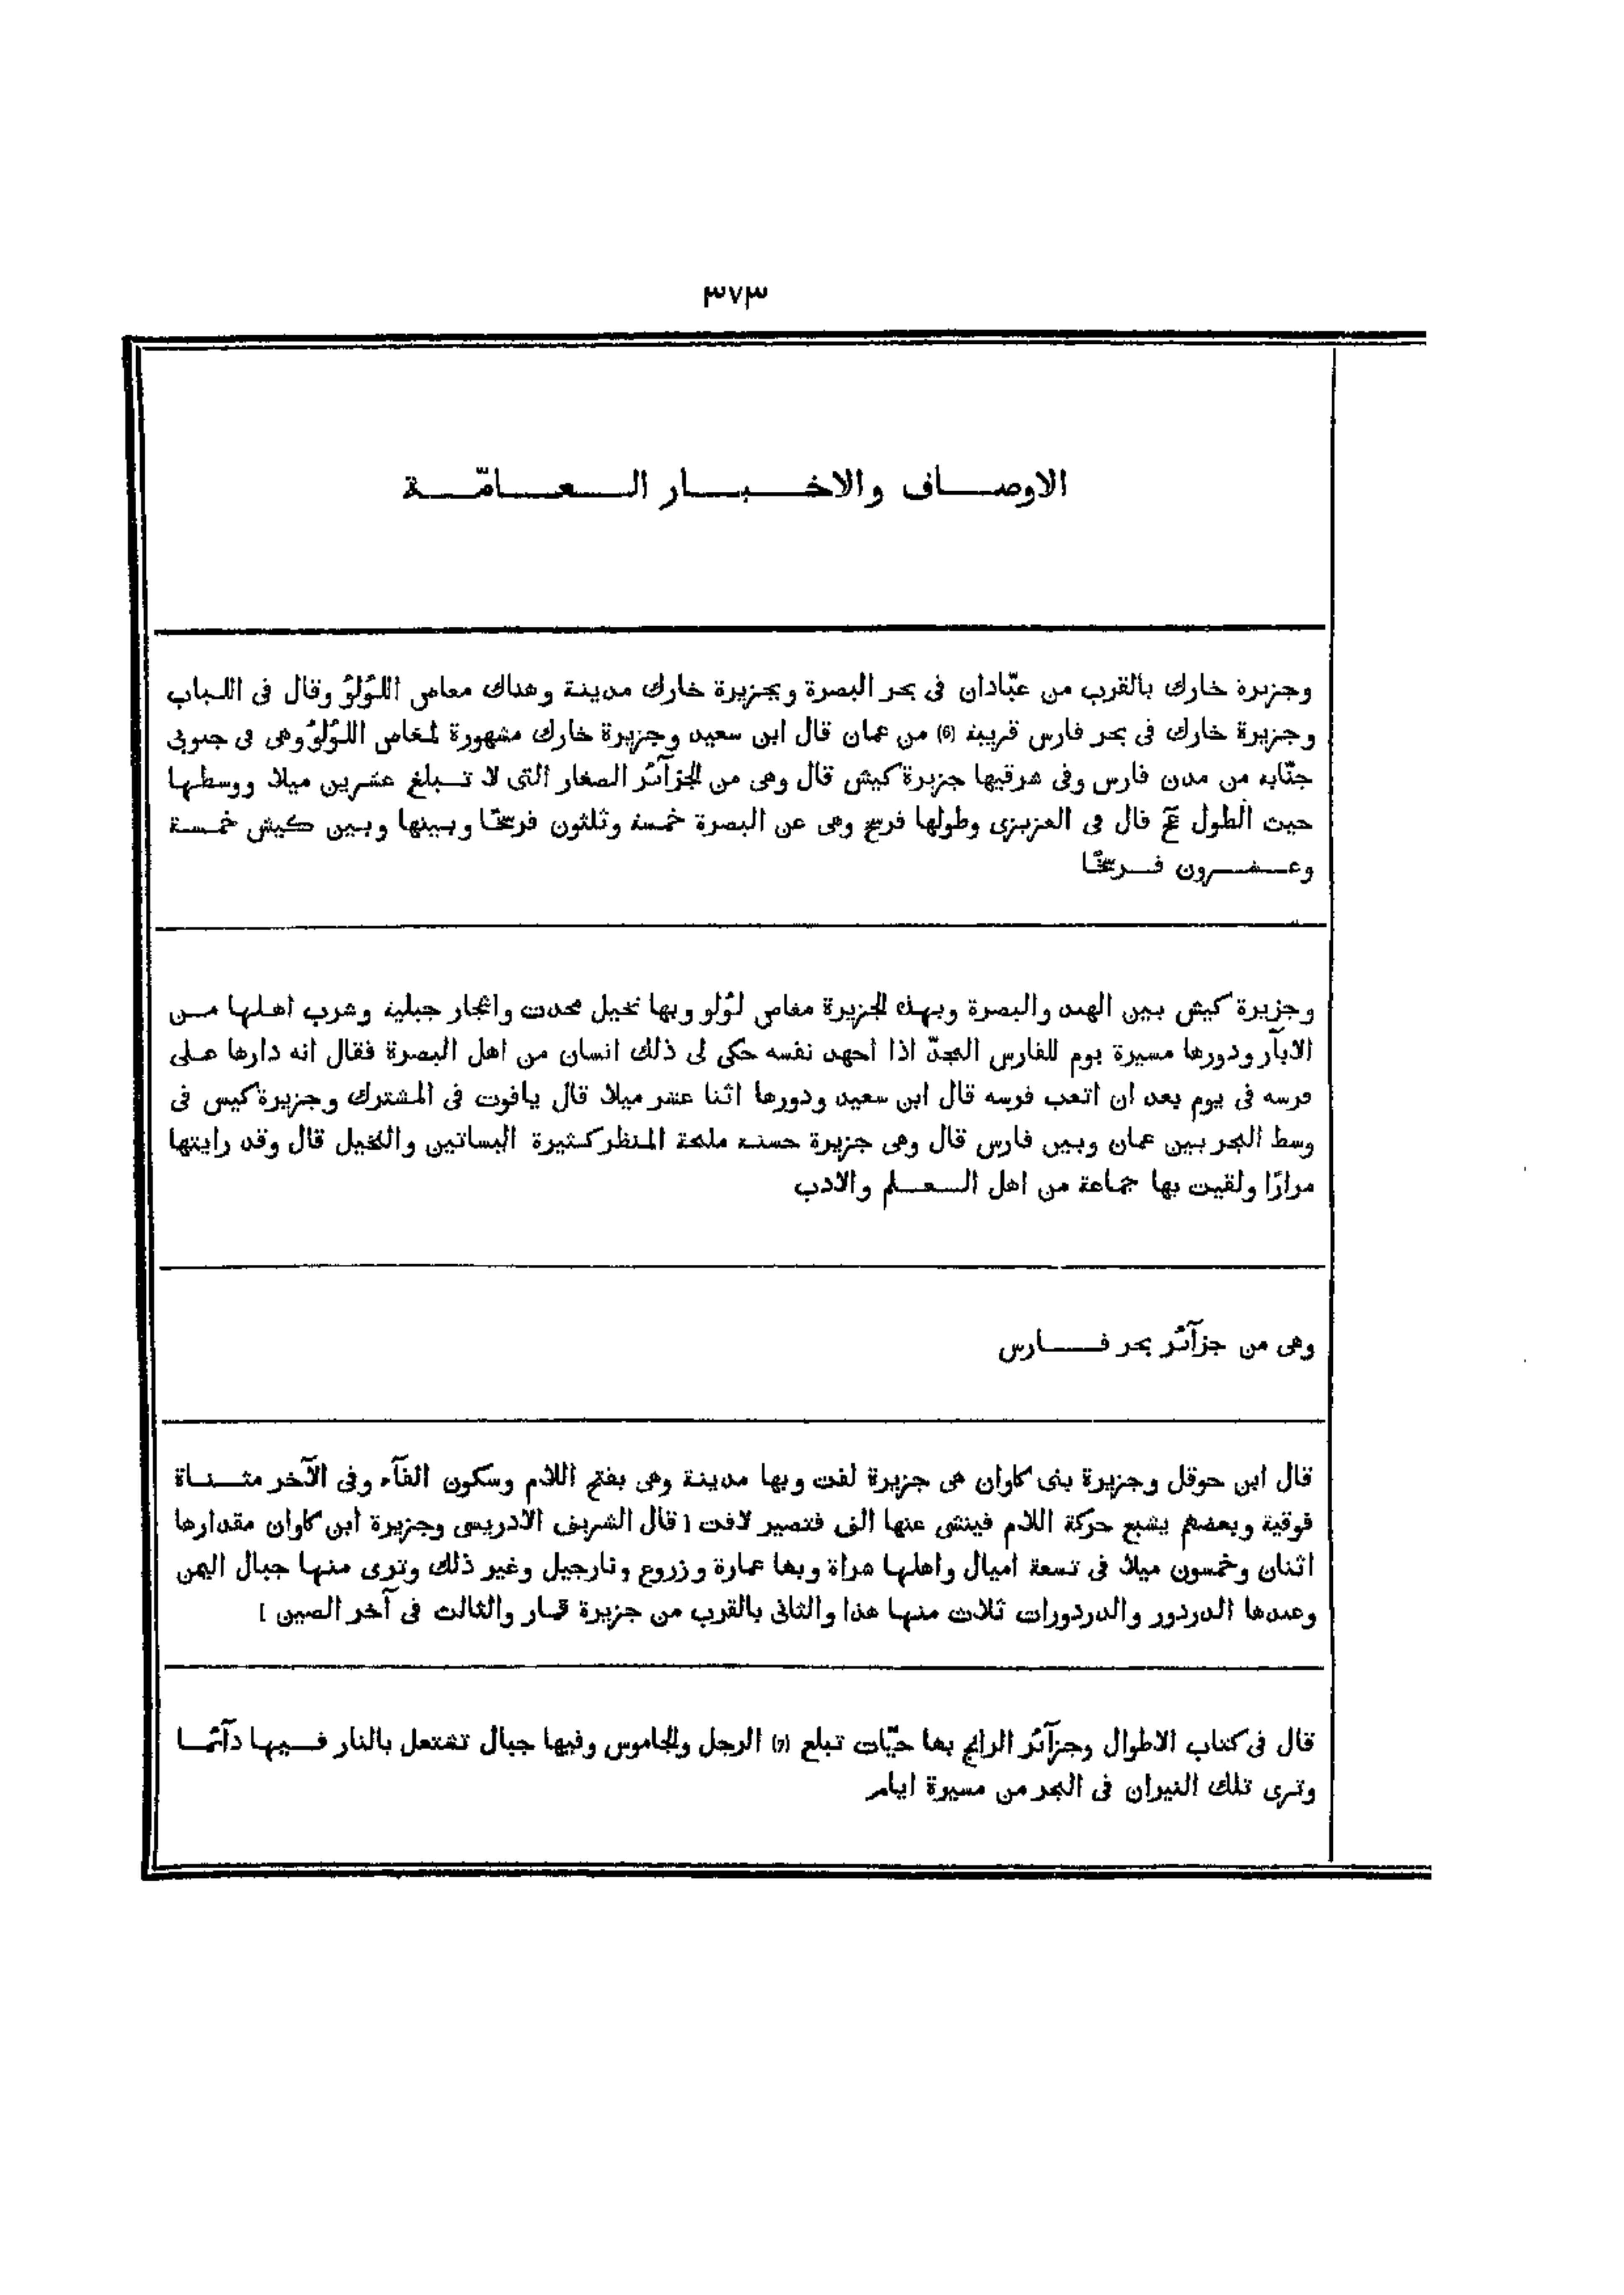 ٣٧٣
الاوصاف والاخبار العامّة
وجزيرة خارك بالقرب من عبّادان فى بحر البصرة وبجزيرة خارك مدينة وهناك مغاص اللؤلؤ وقال فى اللباب
وجزيرة خارك فى بحر فارس قريبة (6) من عمان قال ابن سعيد وجزيرة خارك مشهورة لمغاص اللؤلؤ وهى فى جنوبى
جنّابه من مدن فارس وفى شرقيها جزيرة كيش قال وهى من الجزآئر الصغار التى لا تبلغ عشرين ميلا ووسطها
حيث الطول قال فى العزيزى وطولها فرسخ وهى عن البصرة خمسة وثلثون فرسخًا وبينها وبين كيش خمسة
وعشرون فرسخًا
وجزيرة كيش بين الهند والبصرة وبهذه الجزيرة مغاص لؤلو وبها نخيل محدث واشجار جبلية وشرب اهلها من
الابآر ودورها مسيرة يوم للفارس المجدّ اذا اجهد نفسه حكى لى ذلك انسان من اهل البصرة فقال انه دارها على
فرسه فى يوم بعد ان اتعب فرسه قال ابن سعيد ودورها اثنا عشر ميلا قال ياقوت فى المشترك وجزيرة كيس فى
وسط البحر بين عمان وبين فارس قال وهى جزيرة حسنه ملحة المنظر كثيرة البساتين والنخيل قال وقد رايتها
مرارًا ولقيت بها جماعة من اهل العلم والادب
وهى من جزآئر بحر فارس
قال ابن حوقل وجزيرة بنى كاوان هى جزيرة لفت وبها مدينة وهى بفتح اللام وسكون الفآء وفى الآخر مثناة
فوقية وبعضهم يشبع حركة اللام فينشى عنها الف فتصير لافت [ قال الشريف الادريسى وجزيرة ابن كاوان مقدارها
اثنان وخمسون ميلا فى تسعة اميال واهلها شراة وبها عمارة وزروع ونارجيل وغير ذلك وترى منها جبال اليمن
وعندها الدردور والدردورات ثلاث منها هذا والثانى بالقرب من جزيرة قمار والثالث فى آخر الصين ]
قال فى كتاب الاطوال وجزآئر الرانج بها حيّات تبلع (7) الرجل والجاموس وفيها جبال تشتعل بالنار فيها دآئما
وترى تلك النيران فى البحر من مسيرة ايام